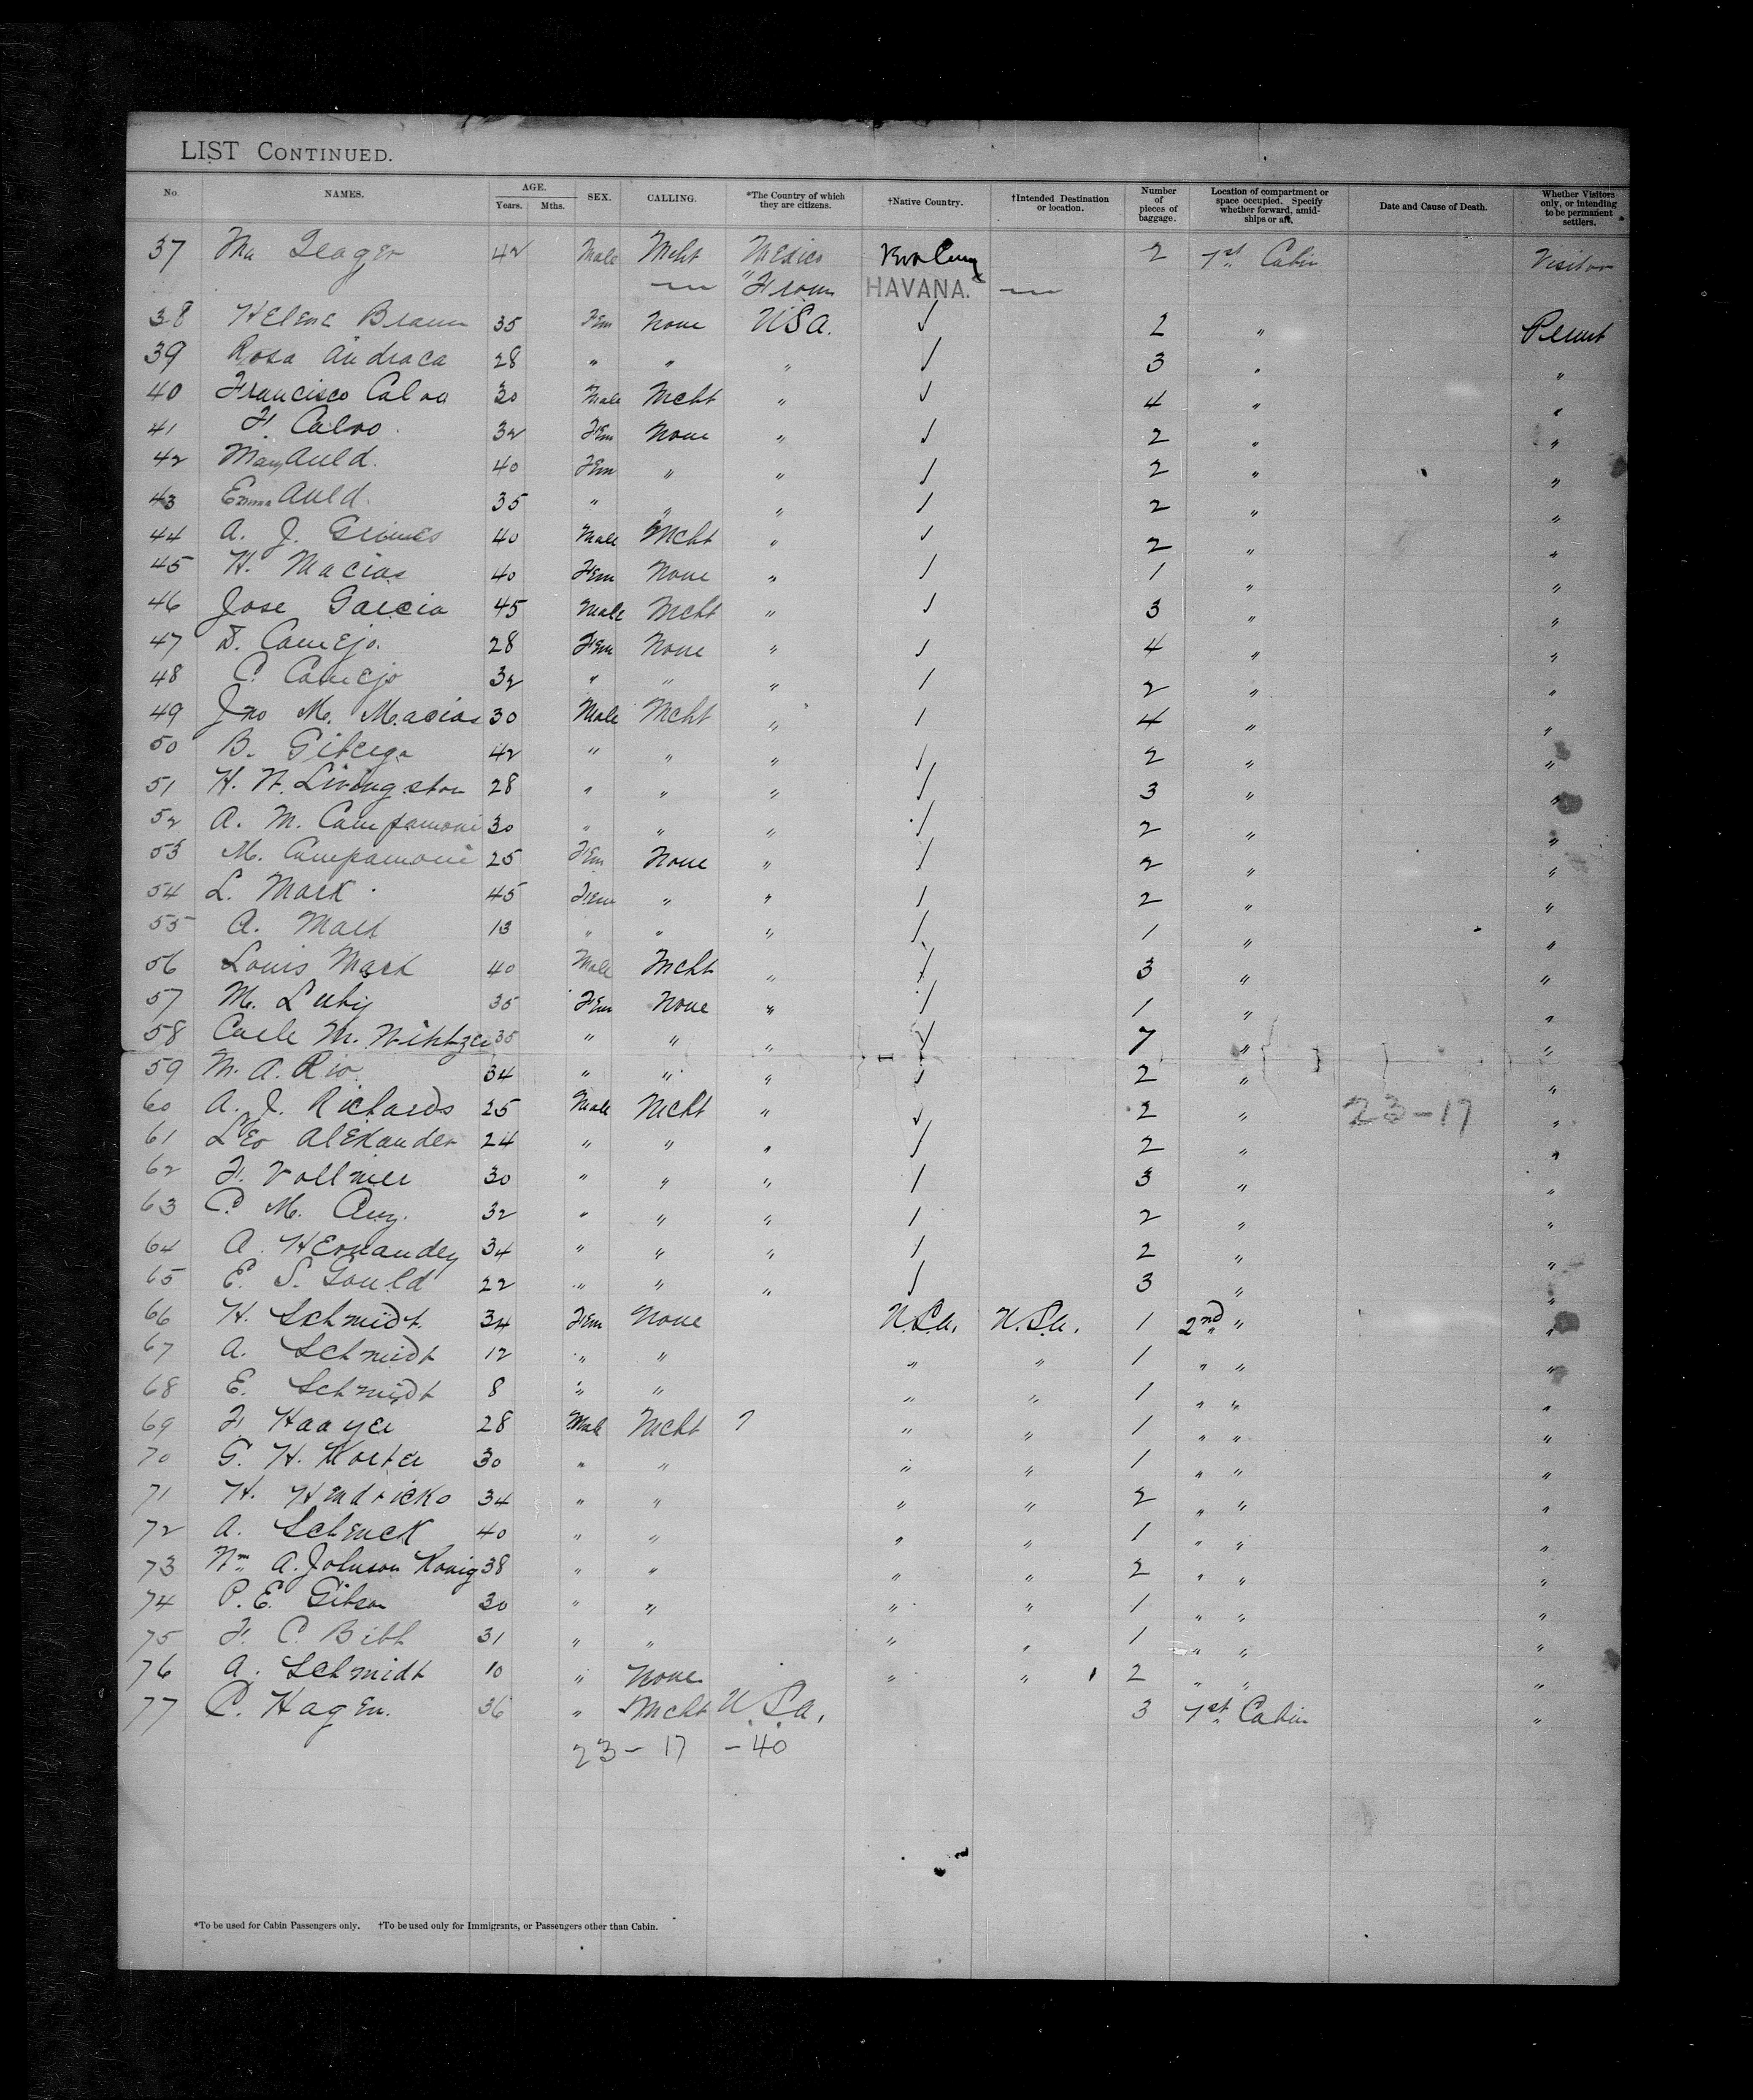 LIST CONTINUED.
No. NAMES. AGE. Years. Mths. SEX. CALLING. *The Country of which they are citizens. †Native Country. †Intended Destination or location. Number of pieces of baggage. Location of compartment or space occupied. Specify whether forward, amidships or aft. Date and Cause of Death. Whether Visitors only, or intending to be permanent settlers.
37 42 Male Mcht Mexico Vera Cruz 2 1st Cabin Visitor
— " From HAVANA. —
38 Helene Braun 35 Fem None USA. ✓ 2 " Permt
39 Rosa Andraca 28 " " " ✓ 3 " "
40 Francisco Calvo 30 Male Mcht " ✓ 4 " "
41 F. Calvo. 32 Fem None " ✓ 2 " "
42 Mary Auld. 40 Fem " " ✓ 2 " "
43 Emma Auld. 35 " " " ✓ 2 " "
44 A. J. Grimes 40 Male Mcht " ✓ 2 " "
45 H. Macias 40 Fem None " ✓ 1 " "
46 Jose Garcia 45 Male Mcht " ✓ 3 " "
47 D. Camejo. 28 Fem None " ✓ 4 " "
48 C. Camejo 32 " " " ✓ 2 " "
49 Jno M. Macias 30 Male Mcht " ✓ 4 " "
50 B. Giberga 42 " " " ✓ 2 " "
51 H. N. Livingston 28 " " " ✓ 3 " "
52 A. M. Campamoni 30 " " " ✓ 2 " "
53 M. Campamoni 25 Fem None " ✓ 2 " "
54 L. Mark 45 Fem " " ✓ 2 " "
55 A. Mark 13 " " " ✓ 1 " "
56 Louis Mark 40 Male Mcht " ✓ 3 " "
57 M. Luby 35 Fem None " ✓ 1 " "
58 M. 35 " " " ✓ 7 " "
59 M. A. Rio. 34 " " " ✓ 2 " "
60 A. J. Richards 25 Male Mcht " ✓ 2 " 23-17 "
61 Leo Alexander 24 " " " ✓ 2 " "
62 F. Vollmer 30 " " " ✓ 3 " "
63 C. M. 32 " " " ✓ 2 " "
64 A. Hernandez 34 " " " ✓ 2 " "
65 E. S. Gould 22 " " " ✓ 3 " "
66 H. Schmidt 34 Fem None U.S.a. U.S.a. 1 2nd " "
67 A. Schmidt 12 " " " " 1 " " "
68 E. Schmidt 8 " " " " 1 " " "
69 F. Haayer 28 Male Mcht ? " " 1 " " "
70 G. H. Korter 30 " " " " 1 " " "
71 H. Hendricks 34 " " " " 2 " " "
72 A. Schenck 40 " " " " 1 " " "
73 Wm A. Johnson Konig 38 " " " " 2 " " "
74 P. E. Gibson 30 " " " " 1 " " "
75 F. C. Bibb 31 " " " " 1 " " "
76 A. Schmidt 10 " None " " 2 " " "
77 C. Hagen. 36 " Mcht U.S.a. 3 1st Cabin "
23 - 17 - 40
*To be used for Cabin Passengers only. †To be used only for Immigrants, or Passengers other than Cabin.